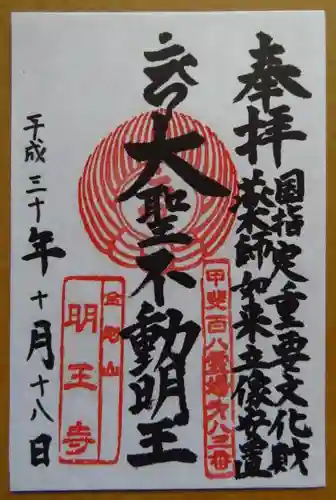 奉拝
国指定重要文化財
薬師如来立像安置
大聖不動明王
甲斐百八霊場第八三番
平成三十年十月十八日
明王寺